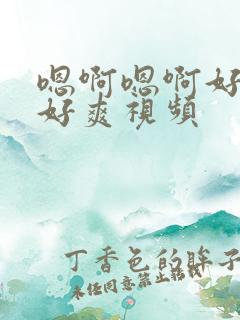 嗯啊嗯啊好
好爽視頻
丁香色的眸子
未经同意禁止转载